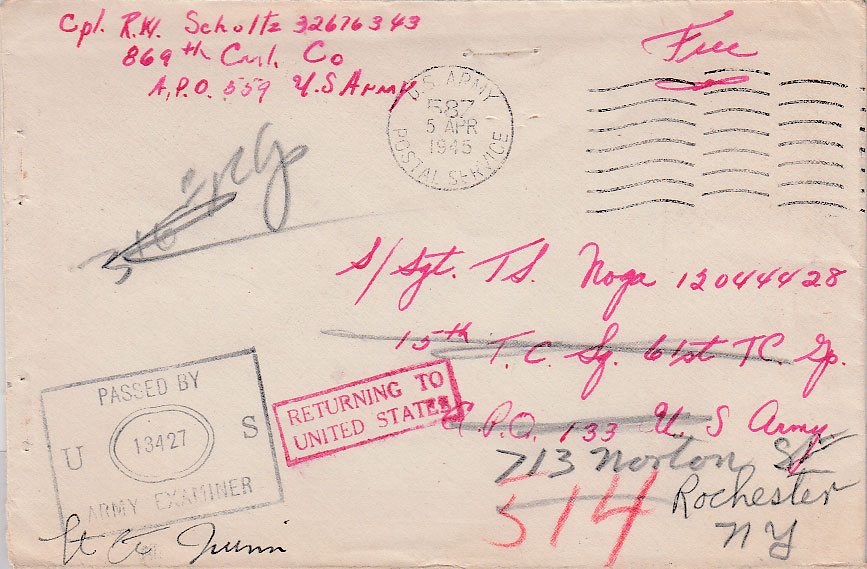 Cpl. R.W. Scholtz 32676343
869th Cml. Co
A.P.O. 559 U.S Army
Free
U.S. ARMY
587
5 APR
1945
POSTAL SERVICE
S/Sgt. T.S. Noga 12044428
15th T.C. Sq. 61st TC. Gp.
A.P.O. 133 U.S Army.
713 Norton St
Rochester
NY
514
RETURNING TO
UNITED STATES
PASSED BY
U 13427 S
ARMY EXAMINER